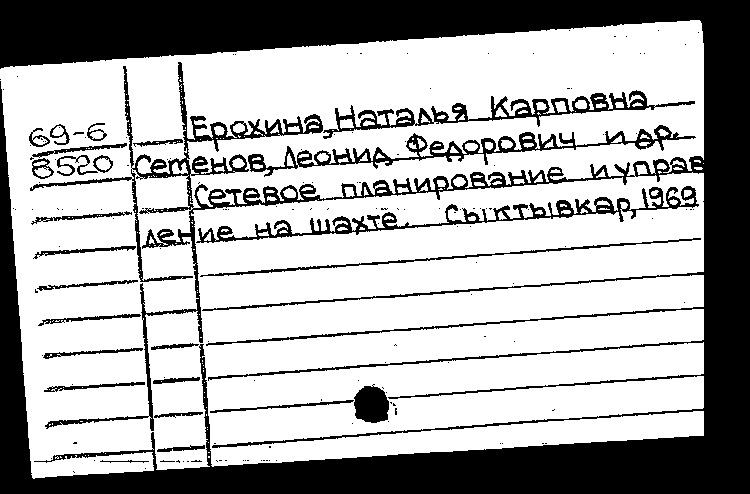 69-6 Ерохина, Наталья Карповна.
8520 Семенов, Леонид Федорович и др.
Сетевое планирование и управ
ление на шахте. Сыктывкар, 1969